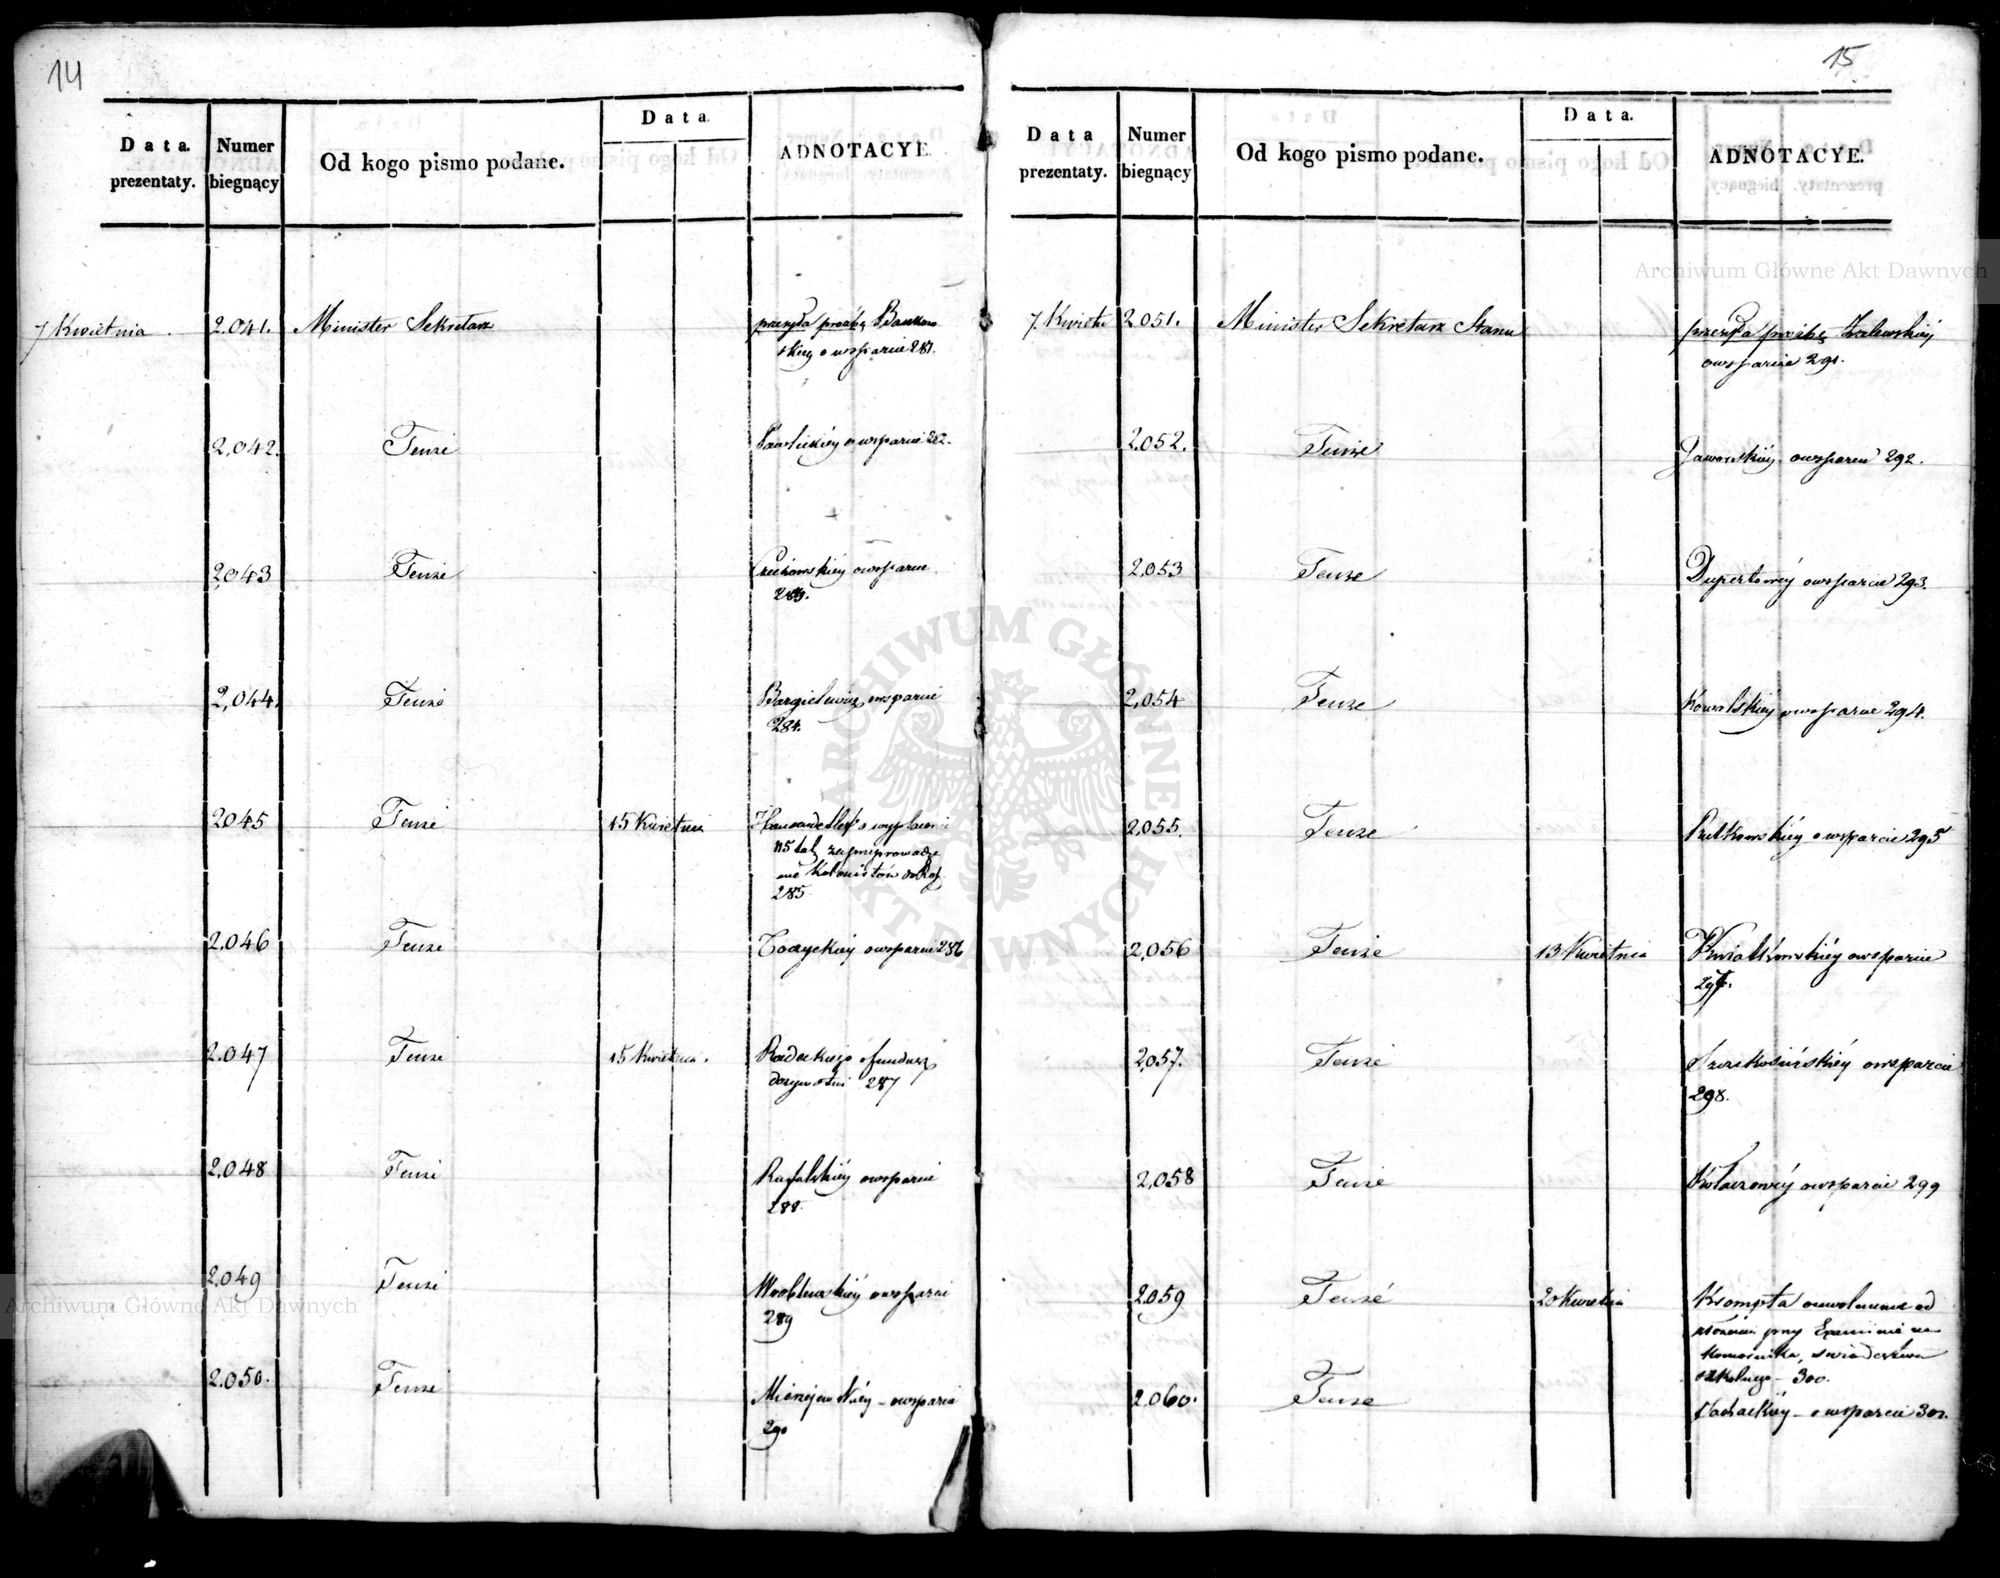 14
Data prezentaty.
Numer biegnący
Od kogo pismo podane.
Data
ADNOTACYE
7 Kwietnia. 2.041. Minister Sekretarz przesyła prośbę
skiey o wsparcie 281.
2,042. Tenże o wsparcie 282.
2,043 Tenże o wsparcie
283.
2,044. Tenże o wsparcie
284.
2045 Tenże 15 Kwietnia
Kolonistów
285.
2.046 Tenże o wsparcie 286
2.047 Tenże 15 Kwietnia. Radeckiego o fundusz
287
2.048 Tenże Rafalskiéy o wsparcie
288.
2.049 Tenże Wróblewskiéy o wsparcie
289
2.050. Tenże o wsparcie
290
15
Data prezentaty.
Numer biegnący
Od kogo pismo podane.
Data.
ADNOTACYE.
7. Kwietn 2051. Minister Sekretarz Stanu przesyła prośbę Zalewskiéy
o wsparcie 291.
2.052. Tenże Jaworskiéy o wsparcie 292.
2,053 Tenże o wsparcie 293.
2,054 Tenże Kowalskiéy o wsparcie 294.
2,055. Tenże Rutkowskiéy o wsparcie 295
2,056 Tenże 13 Kwietnia Kwiatkowskiéy o wsparcie
2,057. Tenże o wsparcie
298.
2,058 Tenże o wsparcie 299
2059 Tenże 20 Kwietnia o uwolnienie od
złożenia przy Examinie na
Komornika, świadectwa
szkolnego – 300.
2.060. Tenże o wsparcie
Archiwum Główne Akt Dawnych
Archiwum Główne Akt Dawnych
ARCHIWUM GŁÓWNE AKT DAWNYCH